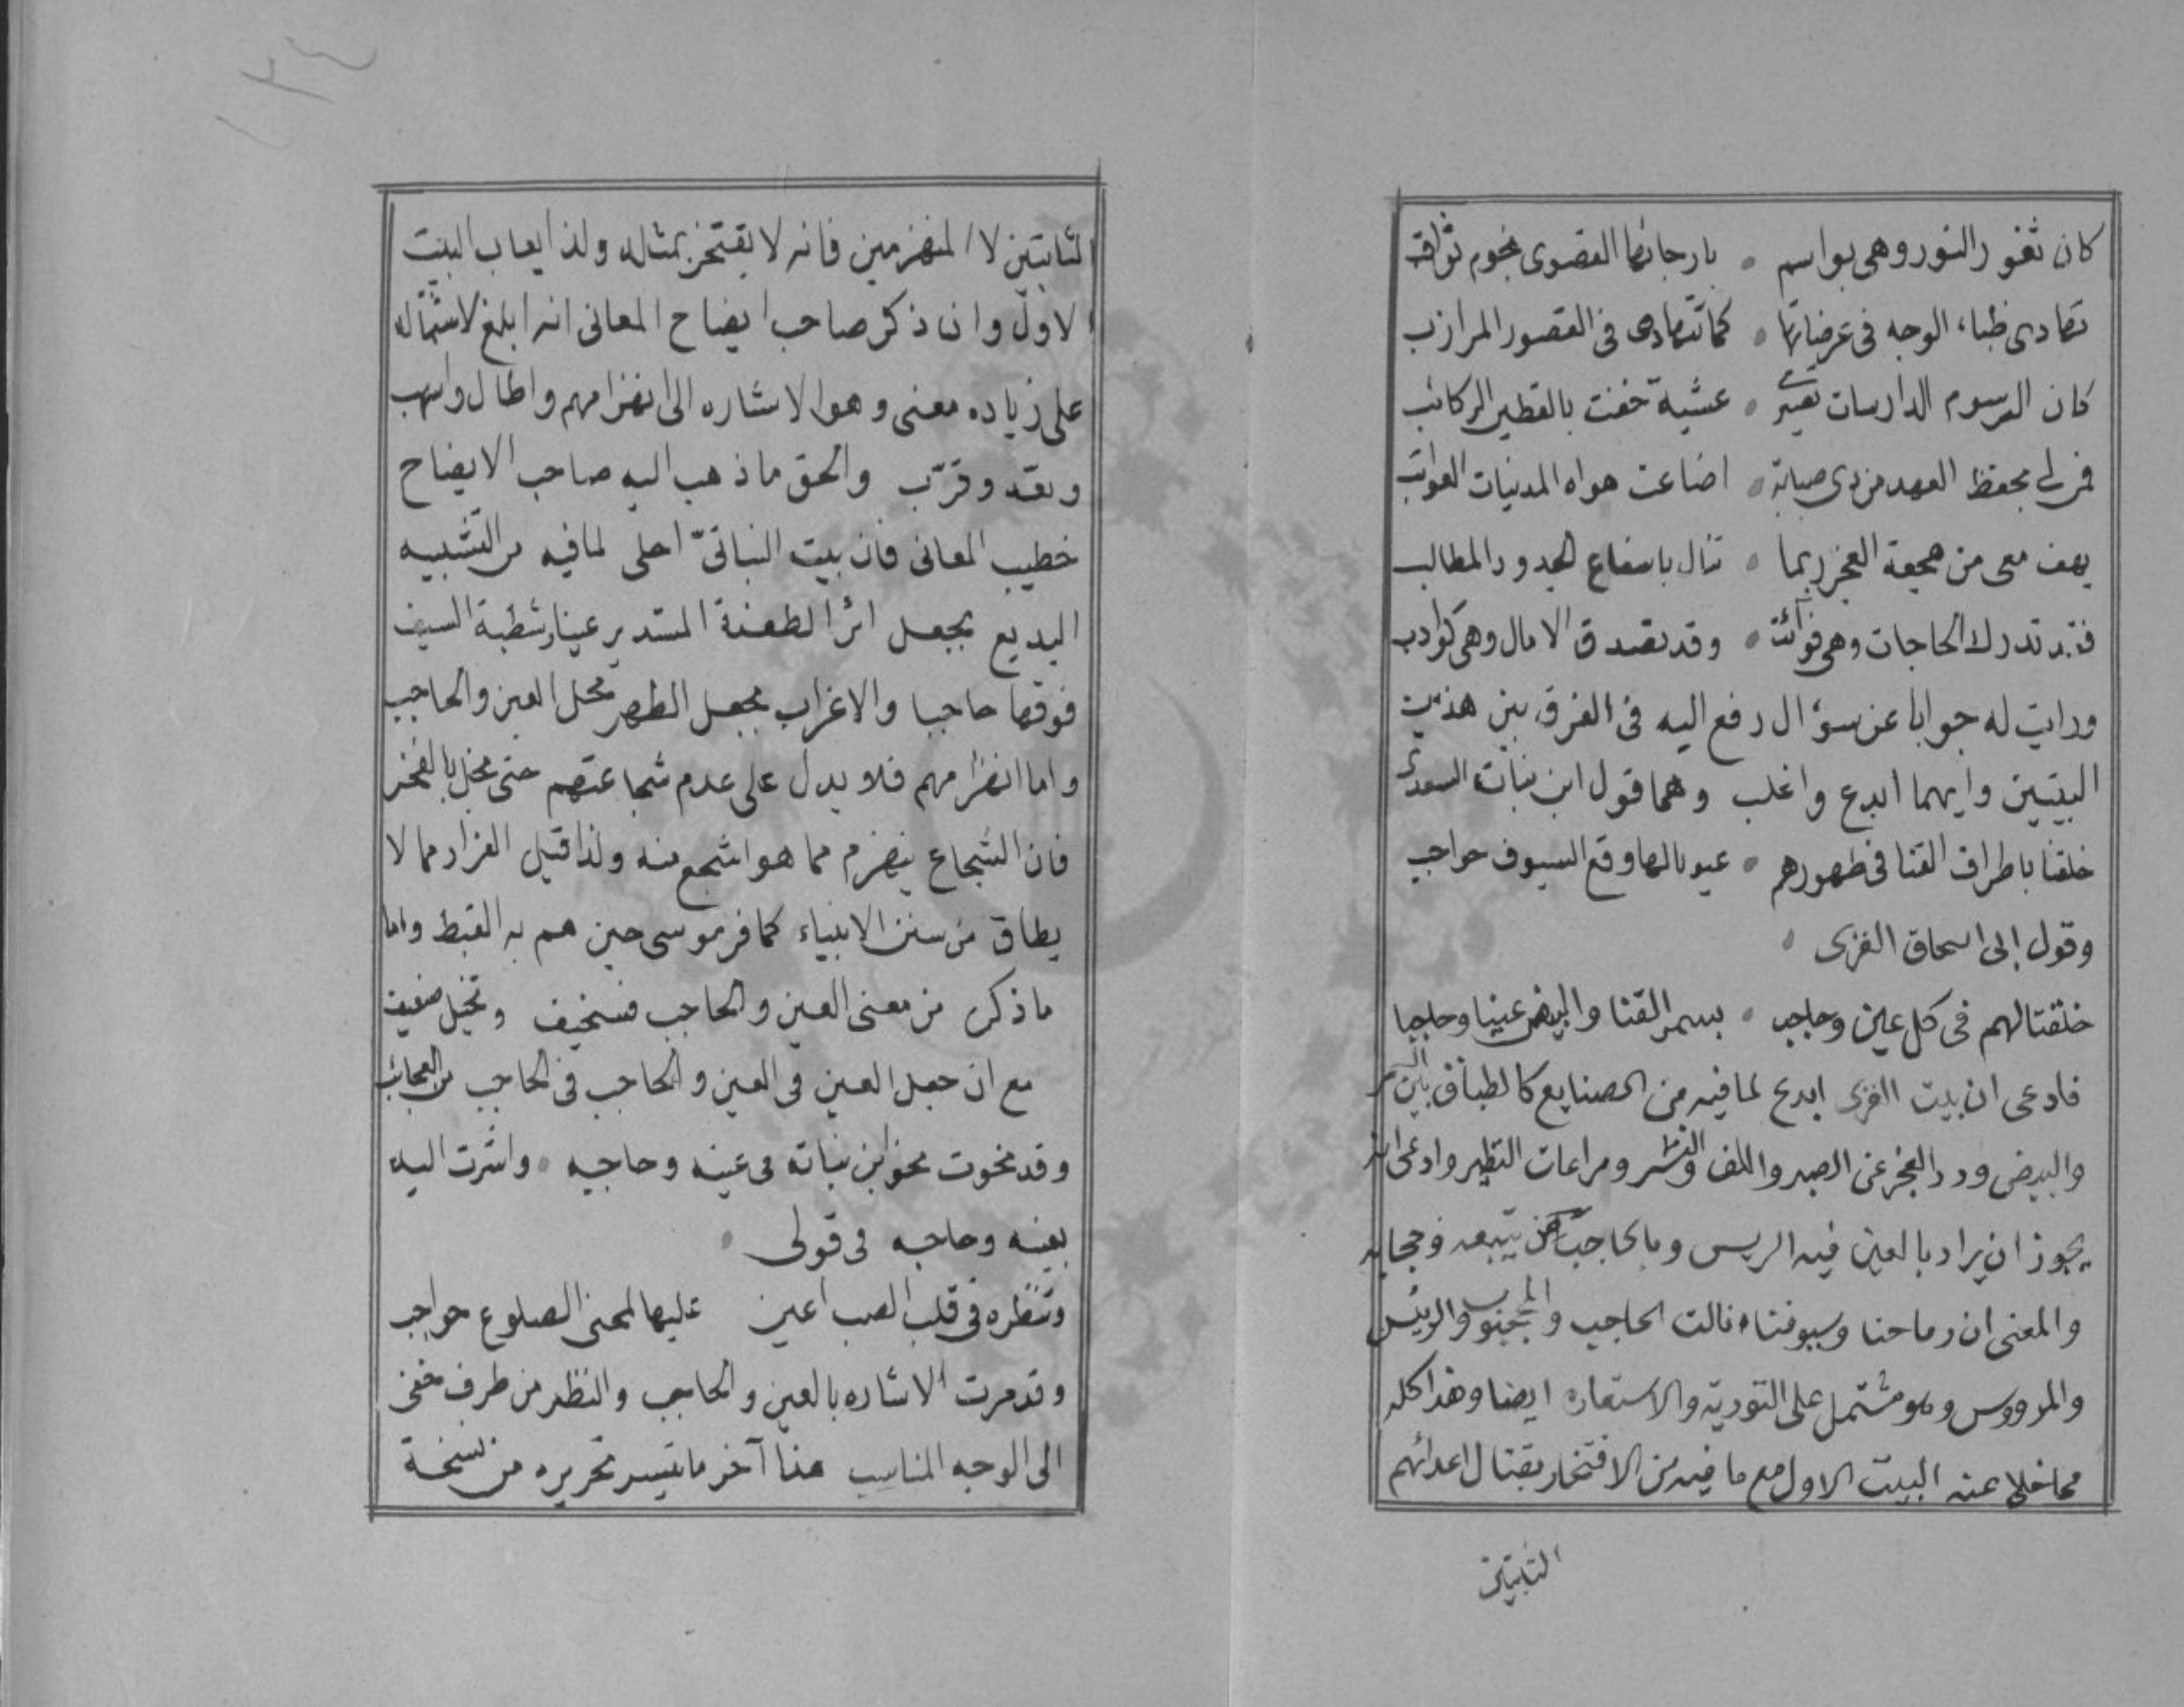 كان ثغور النور وهى بواسم • بارجائها القصوى نجوم ثواقب
تهادى ظباء الوجه فى عرضاتها • كما تتهادى فى القصور المرازب
كان الرسوم الدارسات • عشية خفت بالقطين الركائب
فمن لى بحفظ العهد من ذى صبابة • اضاعت هواه المدنيات العواتب
يهف معى من هجعة الفجر ربما • تنال باسفاع الجدود المطالب
فقد تدرك الحاجات وهى فوائت • وقد تصدق الامال وهى كواذب
ورايت له جوابا عن سوءال رفع اليه فى الفرق بين هذين
البيتين وايهما ابدع واغلب وهما قول ابن نباتة السعدى
خلقنا باطراف القنا فى ظهورهم • عيونا لها وقع السيوف حواجب
وقول ابى اسحاق الغزى •
خلقنا لهم فى كل عين وحاجب • بسمر القنا والبيض عينا وحاجبا
فادعى ان بيت الغزى ابدع لما فيه من الصنايع كالطباق بين السمر
والبيض ورد العجز عن الصدر واللف والنشر ومراعات النظير وادعى انه
يجوز ان يراد بالعين فيه الريس وبالحاجب من يتبعه وحجابه
والمعنى ان رماحنا وسيوفنا نالت الحاجب والمحجوب والرئيس
والمرووس وهو مشتمل على التورية والاستعاره ايضا وهذا كله
مما خلا عنه البيت الاول مع ما فيه من الافتخار بقتال اعدائهم
الثابتين
١٣٤
الثابتين لا المنهزمين فانه لا يفتخر بمثله ولذا يعاب البيت
الاول وان ذكر صاحب ايضاح المعانى انه ابلغ لاشتماله
على زياده معنى وهو الاشاره الى انهزامهم واطال واسهب
وبعد وقرّب والحق ما ذهب اليه صاحب الايضاح
خطيب المعانى فان بيت النباتىّ احلى لما فيه من التشبيه
البديع بجعل اثر الطعنة المستدير عينا وشطبة السيف
فوقها حاجبا والاغراب بجعل الظهر محل العين والحاجب
واما انهزامهم فلا يدل على عدم شجاعتهم حتى يخل بالفخر
فان الشجاع ينهزم مما هو اشجع منه ولذا قيل الفرار مما لا
يطاق من سنن الانبياء كما فر موسى حين هم به القبط واما
ما ذكره من معنى العين والحاجب فسخيف وتخيل ضعيف
مع ان جعل العين فى العين والحاجب فى الحاجب من العجائب
وقد نحوت نحو ابن نباتة فى عينه وحاجبه • واشرت اليه
بعينه وحاجبه فى قولى •
وتنظره فى قلب الصب اعين عليها لمحنى الضلوع حواجب
وقد مرت الاشاره بالعين والحاجب والنظر من طرف خفى
الى الوجه المناسب هذا آخر ما تيسر تحريره من نسخة